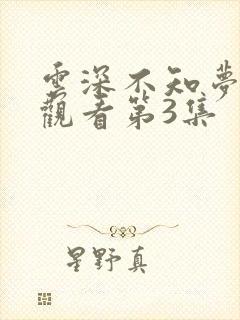 雲深不知夢
觀看第3集
星野真